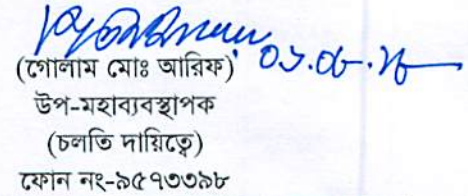 ০১.০৮.১৮
(গোলাম মোঃ আরিফ)
উপ-মহাব্যবস্থাপক
(চলতি দায়িত্বে)
ফোন নং-৯৫৭৩৩৯৮